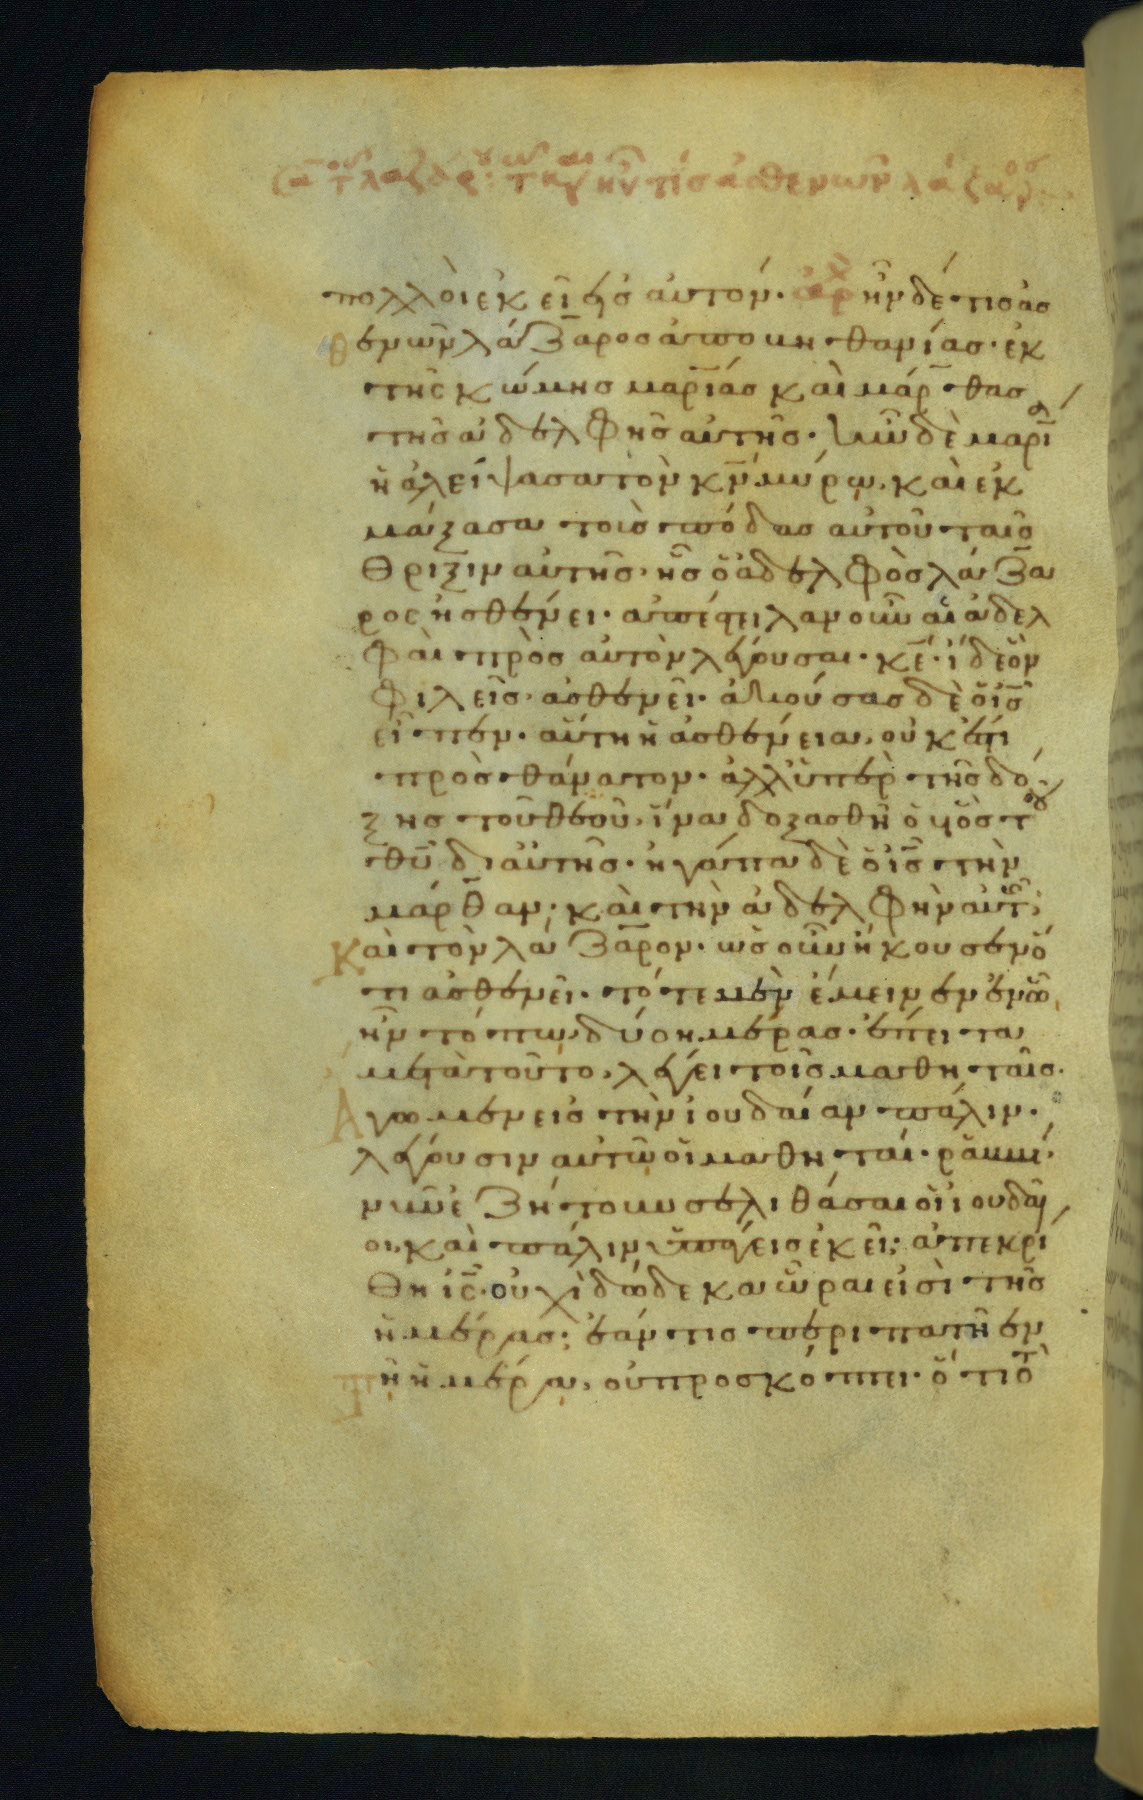 Σα τοῦ λαζάρου: τῶ καιρῶ ἦν τίς ἀσθενῶν λάζαρος
πολλοὶ ἐκεῖ εἰς αὐτόν. ἀρχ ἦν δέ τις ἀσ
θενῶν λάζαρος ἀπὸ βηθανίας. ἐκ
τῆς κώμης μαρίας καὶ μάρθας
τῆς ἀδελφῆς αὐτῆς. ἦν δὲ μαρία
ἡ ἀλείψασα τὸν κν μύρω, καὶ ἐκ
μάξασα τοὺς πόδας αὐτοῦ ταῖς
θριξὶν αὐτῆς. ἧς ὁ ἀδελφὸς λάζα
ρος ἠσθένει. ἀπέστειλαν οὖν αἱ ἀδελ
φαὶ πρὸς αὐτὸν λέγουσαι. κε. ἴδε ὃν
φιλεῖς, ἀσθενεῖ. ἀκούσας δὲ ὁ ις
εἶπεν. αὕτη ἡ ἀσθένεια, οὐκ ἔστι
πρὸς θάνατον. ἀλλ' ὑπὲρ τῆς δό
ξης τοῦ θεοῦ, ἵνα δοξασθῆ ὁ υἱὸς τοῦ
θυ δι' αὐτῆς. ἠγάπα δὲ ὁ ις τὴν
μάρθαν, καὶ τὴν ἀδελφὴν αὐτῆς,
Καὶ τὸν λάζαρον. ὡς οὖν ἤκουσεν ὅ
τι ἀσθενεῖ. τότε μὲν ἔμεινεν ἐν ὧ
ἦν τόπω, δύο ημέρας. ἔπειτα
μετὰ τοῦτο, λέγει τοῖς μαθηταῖς.
Ἄγωμεν εἰς τὴν ἰουδαίαν πάλιν.
λέγουσιν αὐτῶ οἱ μαθηταί. ῥαββί.
νῦν ἐζήτουν σε λιθάσαι οἱ ἰουδαῖ
οι, καὶ πάλιν ὑπάγεις ἐκεῖ; ἀπεκρί
θη ις. οὐχὶ δώδεκα ὧραι εἰσὶ τῆς
ἡμέρας; ἐάν τις περιπατῆ ἐν
τῆ ἡμέρα, οὐ προσκόπτει. ὅτι τὸ